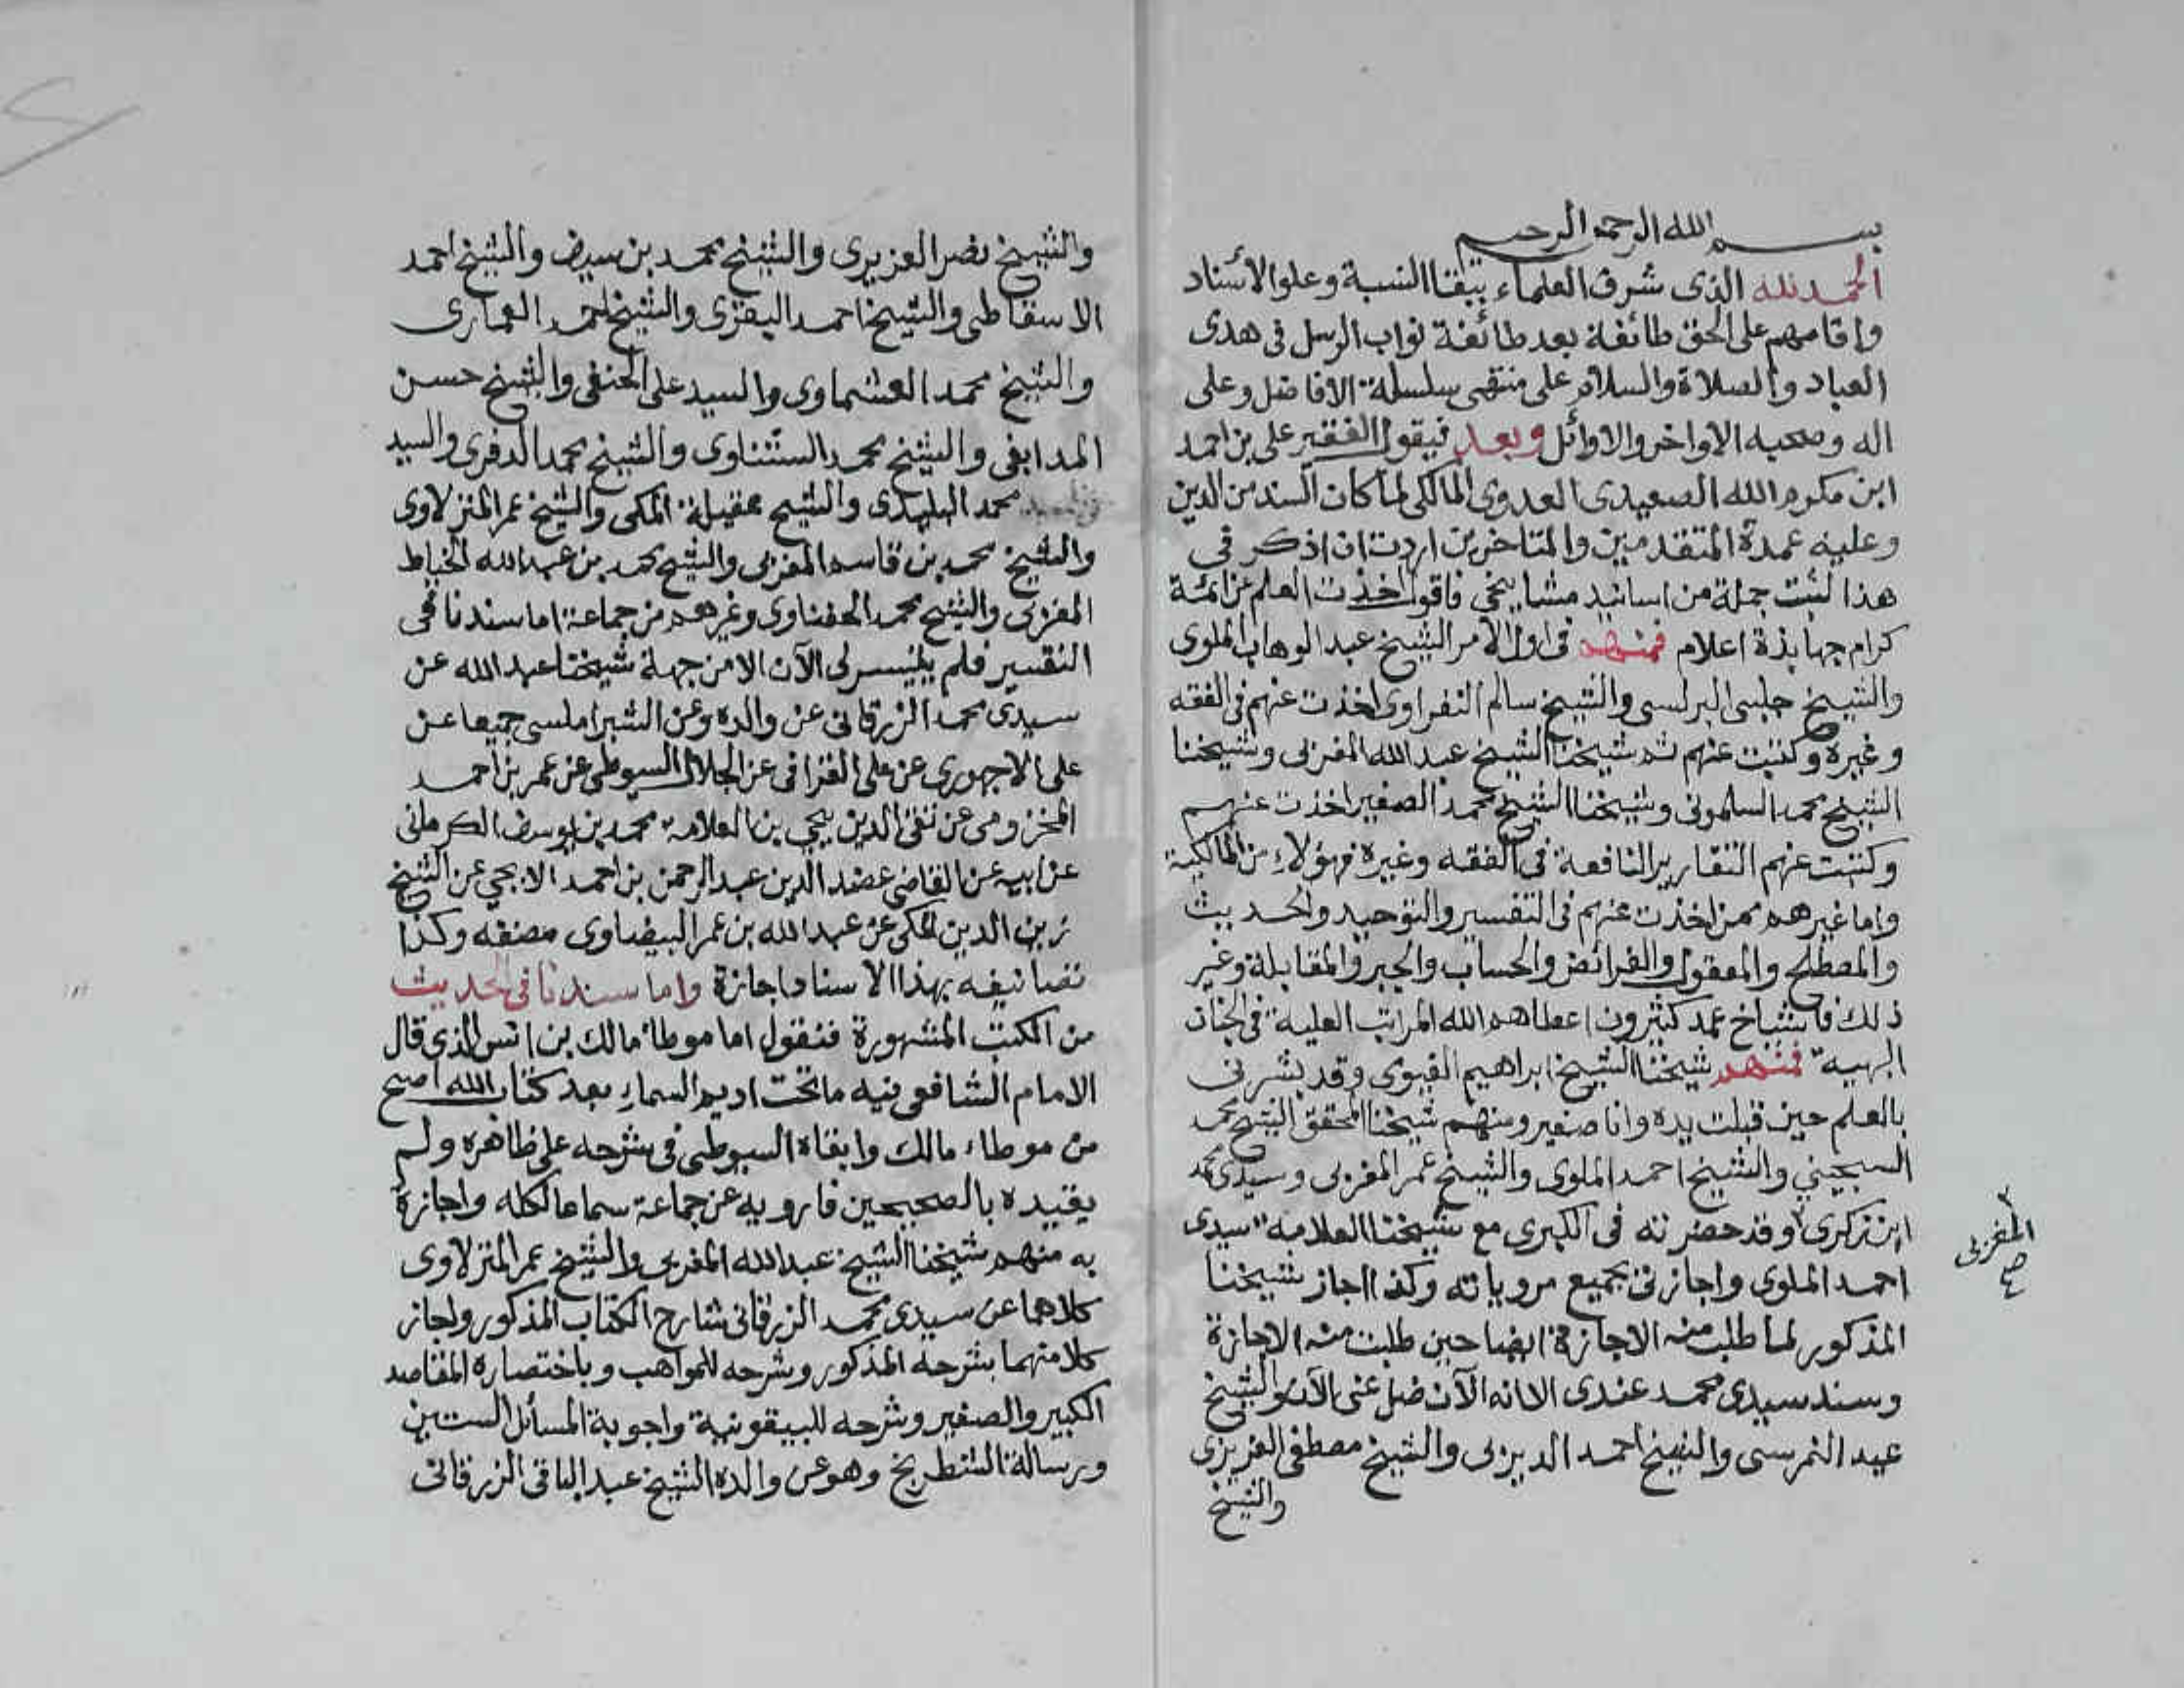 بسم الله الرحمن الرحيم
الحمد لله الذى شرف العلماء ببقا النسبة وعلو الاسناد
واقامهم على الحق طائفة بعد طائفة نواب الرسل فى هدى
العباد والصلاة والسلام على منتهى سلسلة الافاضل وعلى
اله وصحبه الاواخر والاوائل وبعد فيقول الفقير على بن احمد
ابن مكرم الله الصعيدى العدوى المالكى لما كان السند من الدين
وعليه عمدة المتقدمين والمتاخرين اردت ان اذكر فى
هذا الثبت جملة من اسانيد مشايخى فاقول اخذت العلم عن ائمة
كرام جهابذة اعلام فمنهم فى اول الامر الشيخ عبد الوهاب الملوى
والشيخ جلبى البرلسى والشيخ سالم النفراوى اخذت عنهم فى الفقه
وغيره وكتبت عنهم ثم شيخنا الشيخ عبد الله المغربى وشيخنا
الشيخ محمد السلمونى وشيخنا الشيخ محمد الصغير اخذت عنهم
وكتبت عنهم التقارير النافعة فى الفقه وغيره فهؤلاء من المالكية
واما غيرهم ممن اخذت عنهم فى التفسير والتوحيد والحديث
والمصطلح والمعقول والفرائض والحساب والجبر والمقابلة وغير
ذلك فاشياخ عد كثيرون اعطاهم الله المراتب العلية فى الجنان
البهية فمنهم شيخنا الشيخ ابراهيم الفيومى وقد بشرنى
بالعلم حين قبلت يده وانا صغير ومنهم شيخنا المحقق الشيخ محمد
السجينى والشيخ احمد الملوى والشيخ عمر المغربى وسيدى محمد
ابن زكرى وقد حضرته فى الكبرى مع شيخنا العلامة سيدى
المغربى صح
احمد الملوى واجازنى بجميع مروياته وكذا اجاز شيخنا
المذكور لما طلب منه الاجازة ايضا حين طلبت منه الاجازة
وسند سيدى محمد عندى الا انه الآن ضل عنى الآن والشيخ
عيد النمرسى والشيخ احمد الديربى والشيخ مصطفى العزيزى
والشيخ
والشيخ نصر العزيزى والشيخ محمد بن سيف والشيخ احمد
الاسقاطى والشيخ احمد البقرى والشيخ احمد العمارى
والشيخ محمد العشماوى والسيد على الحنفى والشيخ حسن
المدابغى والشيخ محمد الستناوى والشيخ محمد الدفرى والسيد
محمد البليدى والشيخ عقيلة المكى والشيخ عمر المنزلاوى
والشيخ محمد بن قاسم المغربى والشيخ محمد بن عبد الله الخياط
المغربى والشيخ محمد الحفناوى وغيرهم من جماعة اما سندنا فى
التفسير فلم يتيسر لى الآن الا من جهة شيخنا عبد الله عن
سيدى محمد الزرقانى عن والده وعن الشبراملسى جميعا عن
على الاجهورى عن على القرافى عن الجلال السيوطى عن عمر بن احمد
المخزومى عن تقى الدين يحيى بن العلامة محمد بن يوسف الكرمانى
عن ابيه عن القاضى عضد الدين عبد الرحمن بن احمد الايجى عن الشيخ
زين الدين المكى عن عبد الله بن عمر البيضاوى مصنفه وكذا
تصانيفه بهذا الاسناد اجازة واما سندنا فى الحديث
من الكتب المشهورة فنقول اما موطا مالك بن انس الذى قال
الامام الشافعى فيه ما تحت اديم السماء بعد كتاب الله اصح
من موطاء مالك وابقاه السيوطى فى شرحه على ظاهره ولم
يقيده بالصحيحين فارويه عن جماعة سماعا لكله واجازة
به منهم شيخنا الشيخ عبد الله المغربى والشيخ عمر المنزلاوى
كلاهما عن سيدى محمد الزرقانى شارح الكتاب المذكور واجاز
كلا منهما بشرحه المذكور وشرحه للمواهب وباختصاره المقاصد
الكبير والصغير وشرحه للبيقونية واجوبة المسائل الستين
ورسالة الشطرنج وهو عن والده الشيخ عبد الباقى الزرقانى